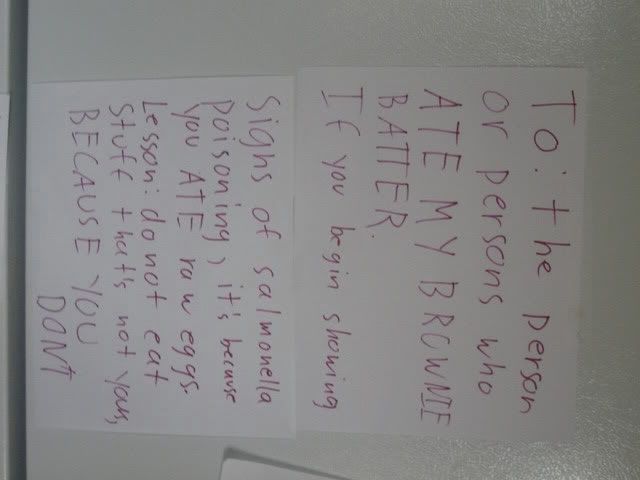 TO: the person
or persons who
ATE MY BROWNIE
BATTER.
If you begin showing
Signs of salmonella
poisoning, it's because
you ATE raw eggs.
Lesson: do not eat
stuff that's not yours,
BECAUSE YOU
DONT